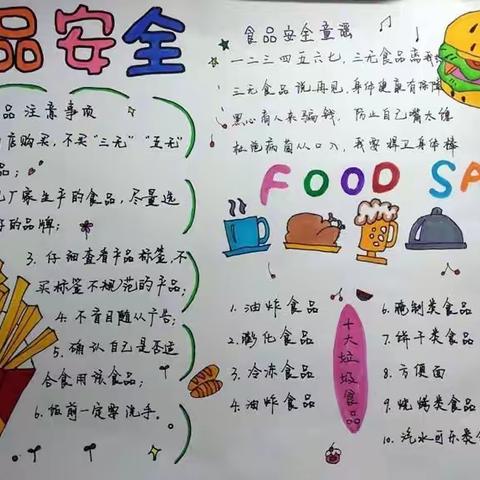 品安全
品 注意事项
店购买，不买“三无”“五无”
品；
厂家生产的食品，尽量选
的品牌；
3. 仔细查看产品标签，不
买标签不规范的产品；
4. 不盲目随从广告；
5. 确认自己是否适
合食用该食品；
6. 饭前一定要洗手。
食品安全童谣
一二三四五六七，三无食品离我
三无食品说再见，身体健康有保障
黑心商人来骗钱， 防止自己嘴太馋
杜绝病菌从口入，我要捍卫身体棒
FOOD SA
十大垃圾食品
1. 油炸食品
2. 膨化食品
3. 冷冻食品
4. 油炸食品
6. 腌制类食品
7. 饼干类食品
8. 方便面
9. 烧烤类食品
10. 汽水可乐类